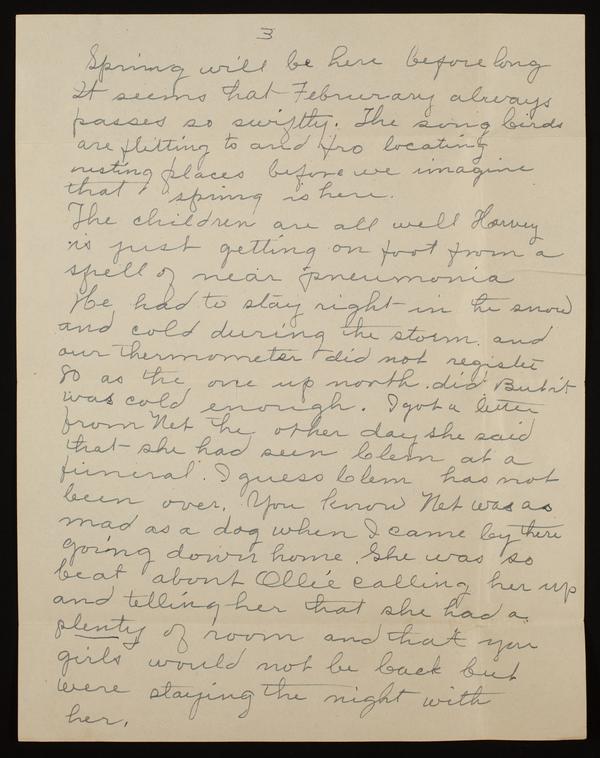 3
Spring will be here before long
It seems that Februrary always
passes so swiftly. The song birds
are flitting to and fro locating
nesting places before we imagine
that spring is here.
The children are all well Harvey
is just getting on foot from a
spell of near pneumonia
He had to stay right in the snow
and cold during the storm. and
our thermometer did not register
80 as the one up north did But it
was cold enough. I got a letter
from Net the other day she said
that she had seen Clem at a
funeral. I guess Clem has not
been over. You know Net was as
mad as a dog when I came by there
going down home. She was so
beat about Ollie calling her up
and telling her that she had a
plenty of room and that you
girls would not be back but
were staying the night with
her.